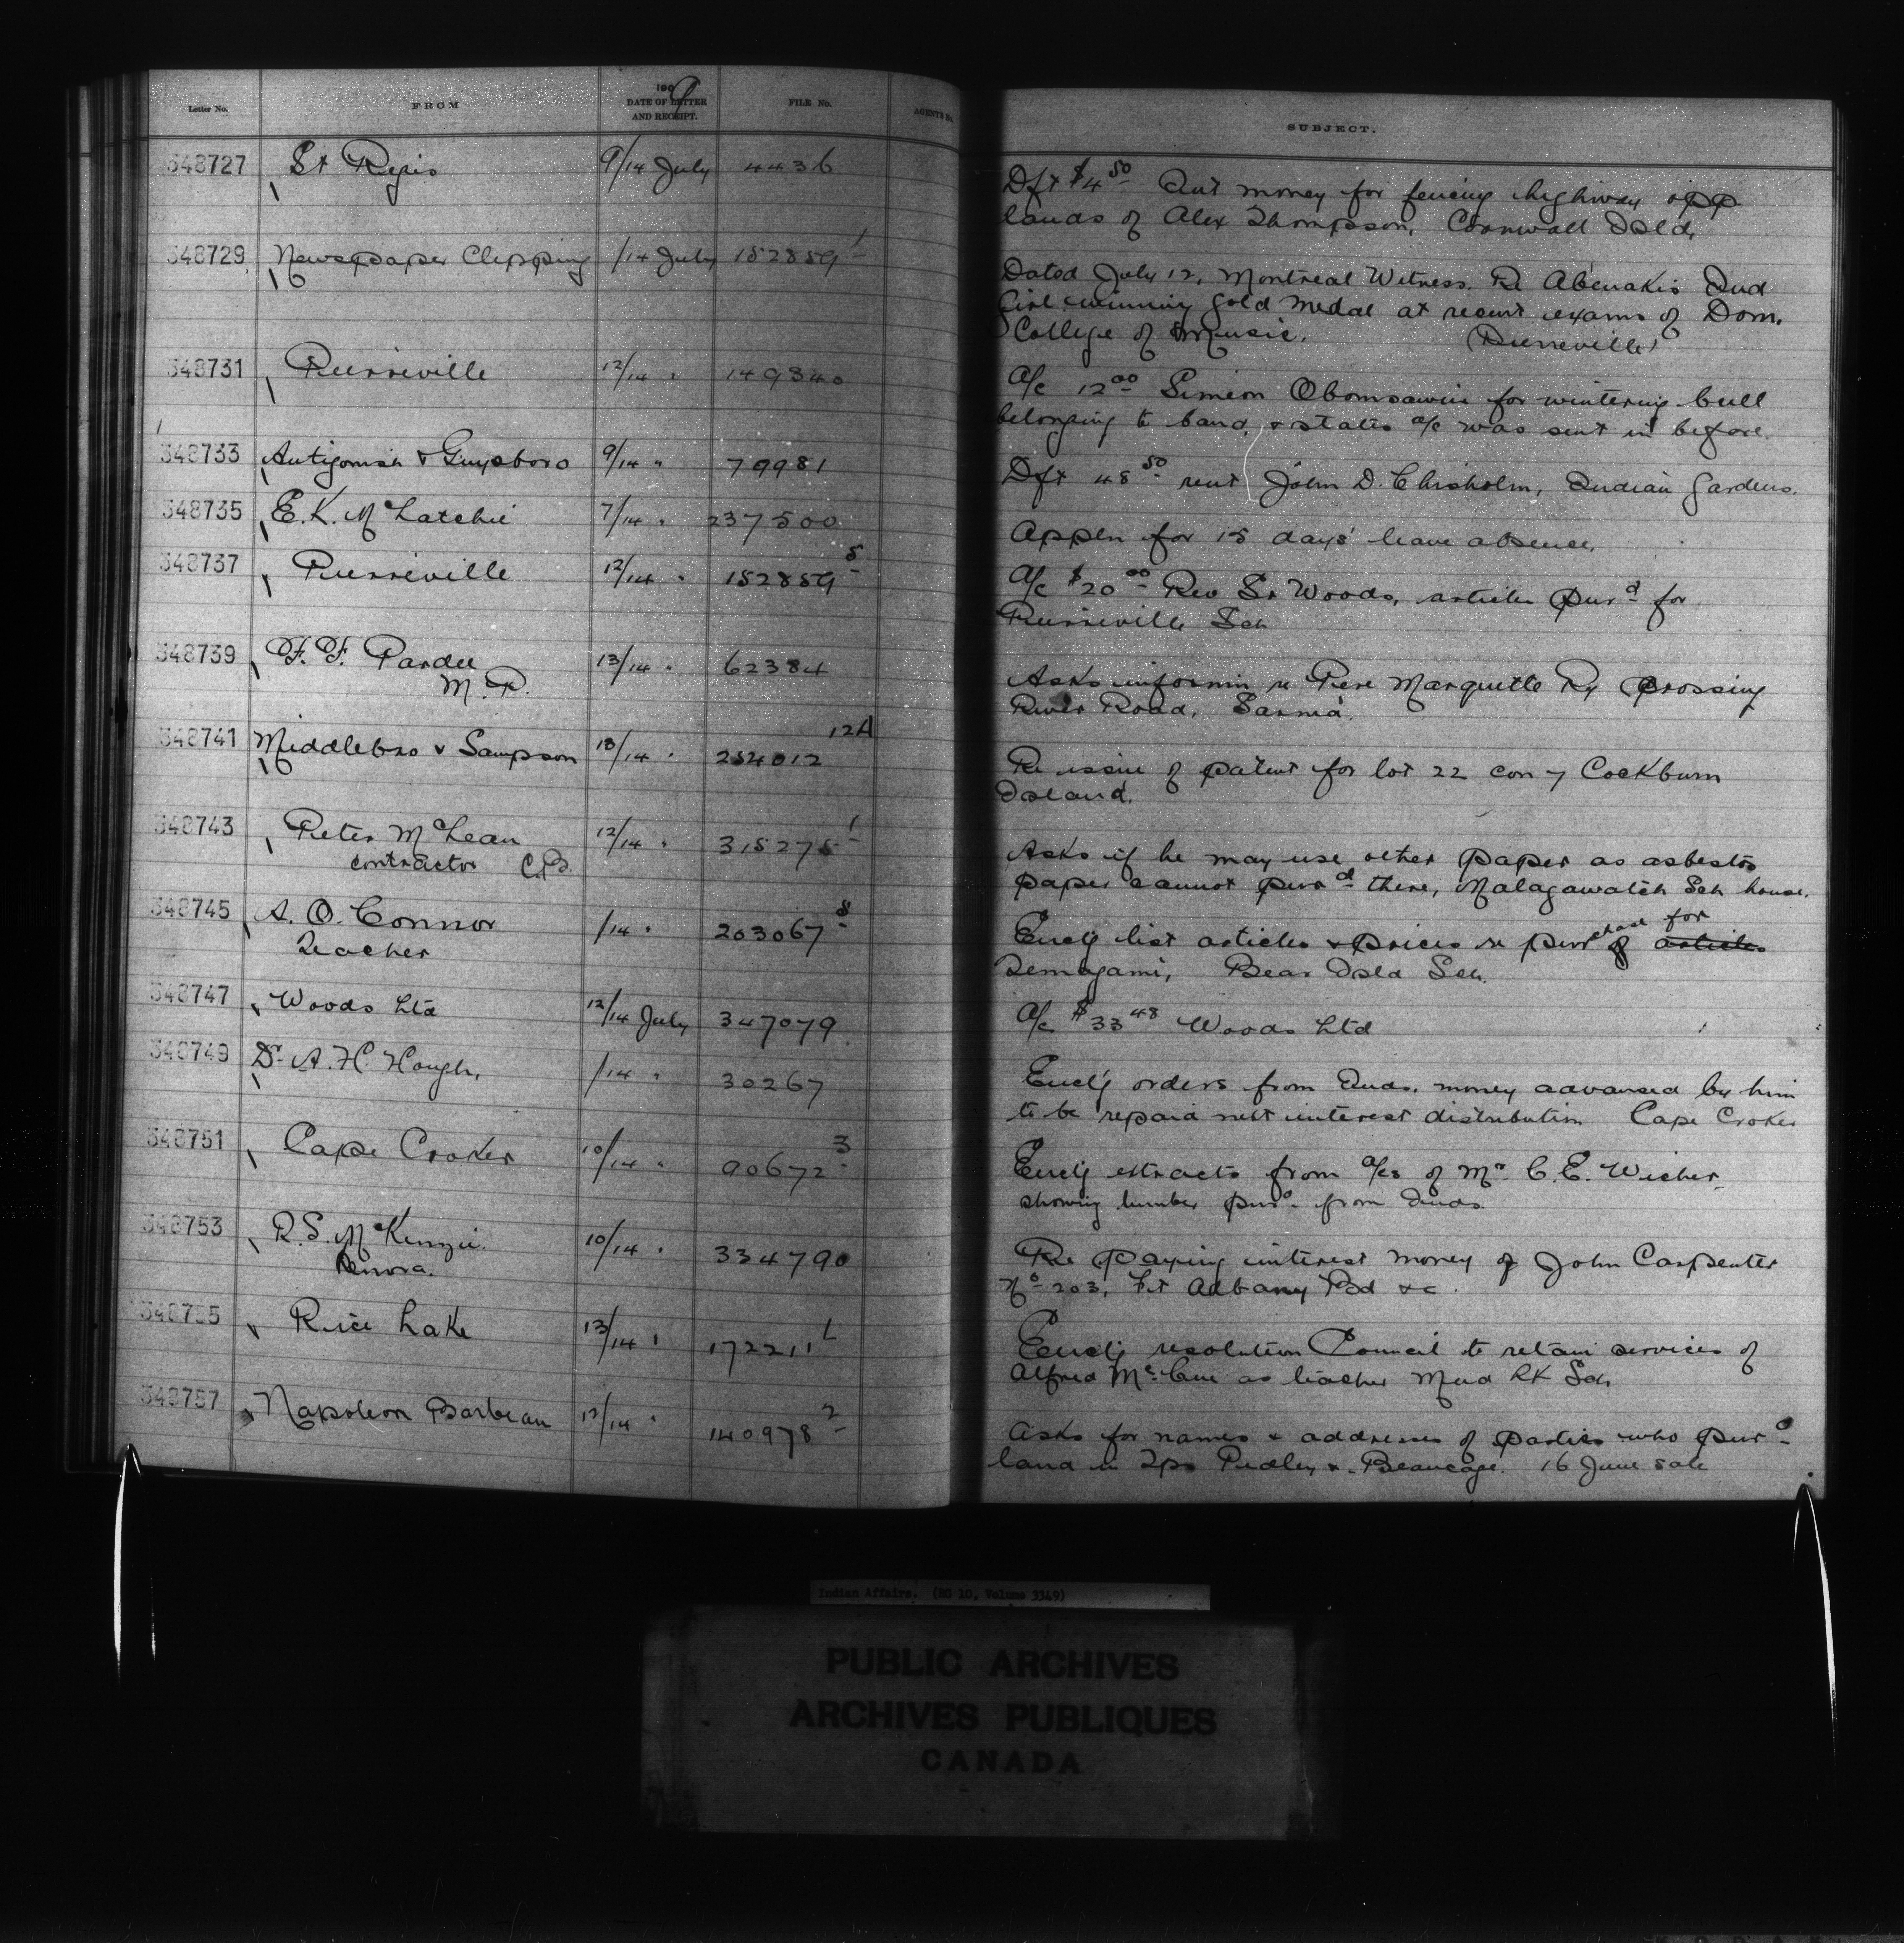 Letter No. FROM 1909 DATE OF LETTER AND RECEIPT. FILE No. AGENT'S No. SUBJECT.
348727 St Regis 9/14 July 4436 Dft $4 50 Aut money for fencing highway opp
lands of Alex Thompson, Cornwall Isld,
348729 Newspaper Clipping /14 July 152859 1 Dated July 12, Montreal Witness. Re Abenakis Ind
Girl winning gold medal at recent exams of Dom.
College of Music. (Pierreville)
348731 Pierreville 12/14 " 149340 A/c 12 00 Simeon Obomsawin for wintering bull
belonging to band, & states a/c was sent in before.
348733 Antigonish & Guysboro 9/14 " 79981 Dft 48 50 rent John D. Chisholm, Indian Gardens.
348735 E.K. McLatchie 7/14 " 237500 Appln for 15 days' leave absence.
348737 Pierreville 12/14 " 152859 5 A/c $20 00 Rev Sr Woods, articles purd for
Pierreville Sch
348739 F. F. Pardee 13/14 " 62384 Asks informin re Pere Marquette Ry Crossing
M.P. River Road, Sarnia.
348741 Middlebro & Sampson 13/14 " 254012 12A Re issue of patent for lot 22 con 7 Cockburn
Island.
348743 Peter McLean 12/14 " 315275 1 Asks if he may use other paper as asbestos
contractor C.B. paper cannot purd there, Malagawatch Sch house.
348745 A. O. Connor /14 " 203067 8 Encl'g list articles & prices re purchase of articles for
Teacher Temagami, Bear Isld Sch.
348747 Woods Ltd 12/14 July 347079 A/c $33 48 Woods Ltd
348749 Dr. A. H. Hough, /14 " 30267 Encl'g orders from Inds. money advanced by him
to be repaid next interest distribution Cape Croker
348751 Cape Croker 10/14 " 90672 3 Encl'g extracts from a/cs of Mr. C. E. Wicher
showing lumber purd. from Inds.
348753 R.S. McKenzie 10/14 " 334790 Re paying interest money of John Carpenter
Kenora. No 203, Ft Albany Bd &c
348755 Rice Lake 13/14 " 172211 1 Encl'g resolution Council to retain services of
Alfred McCue as teacher Mud Lk Sch
348757 Napoleon Barbeau 12/14 " 140978 2 Asks for names & addresses of parties who purd
land in Tps Pedley & Beaucage. 16 June sale
Indian Affairs. (RG 10, Volume 3349)
PUBLIC ARCHIVES
ARCHIVES PUBLIQUES
CANADA